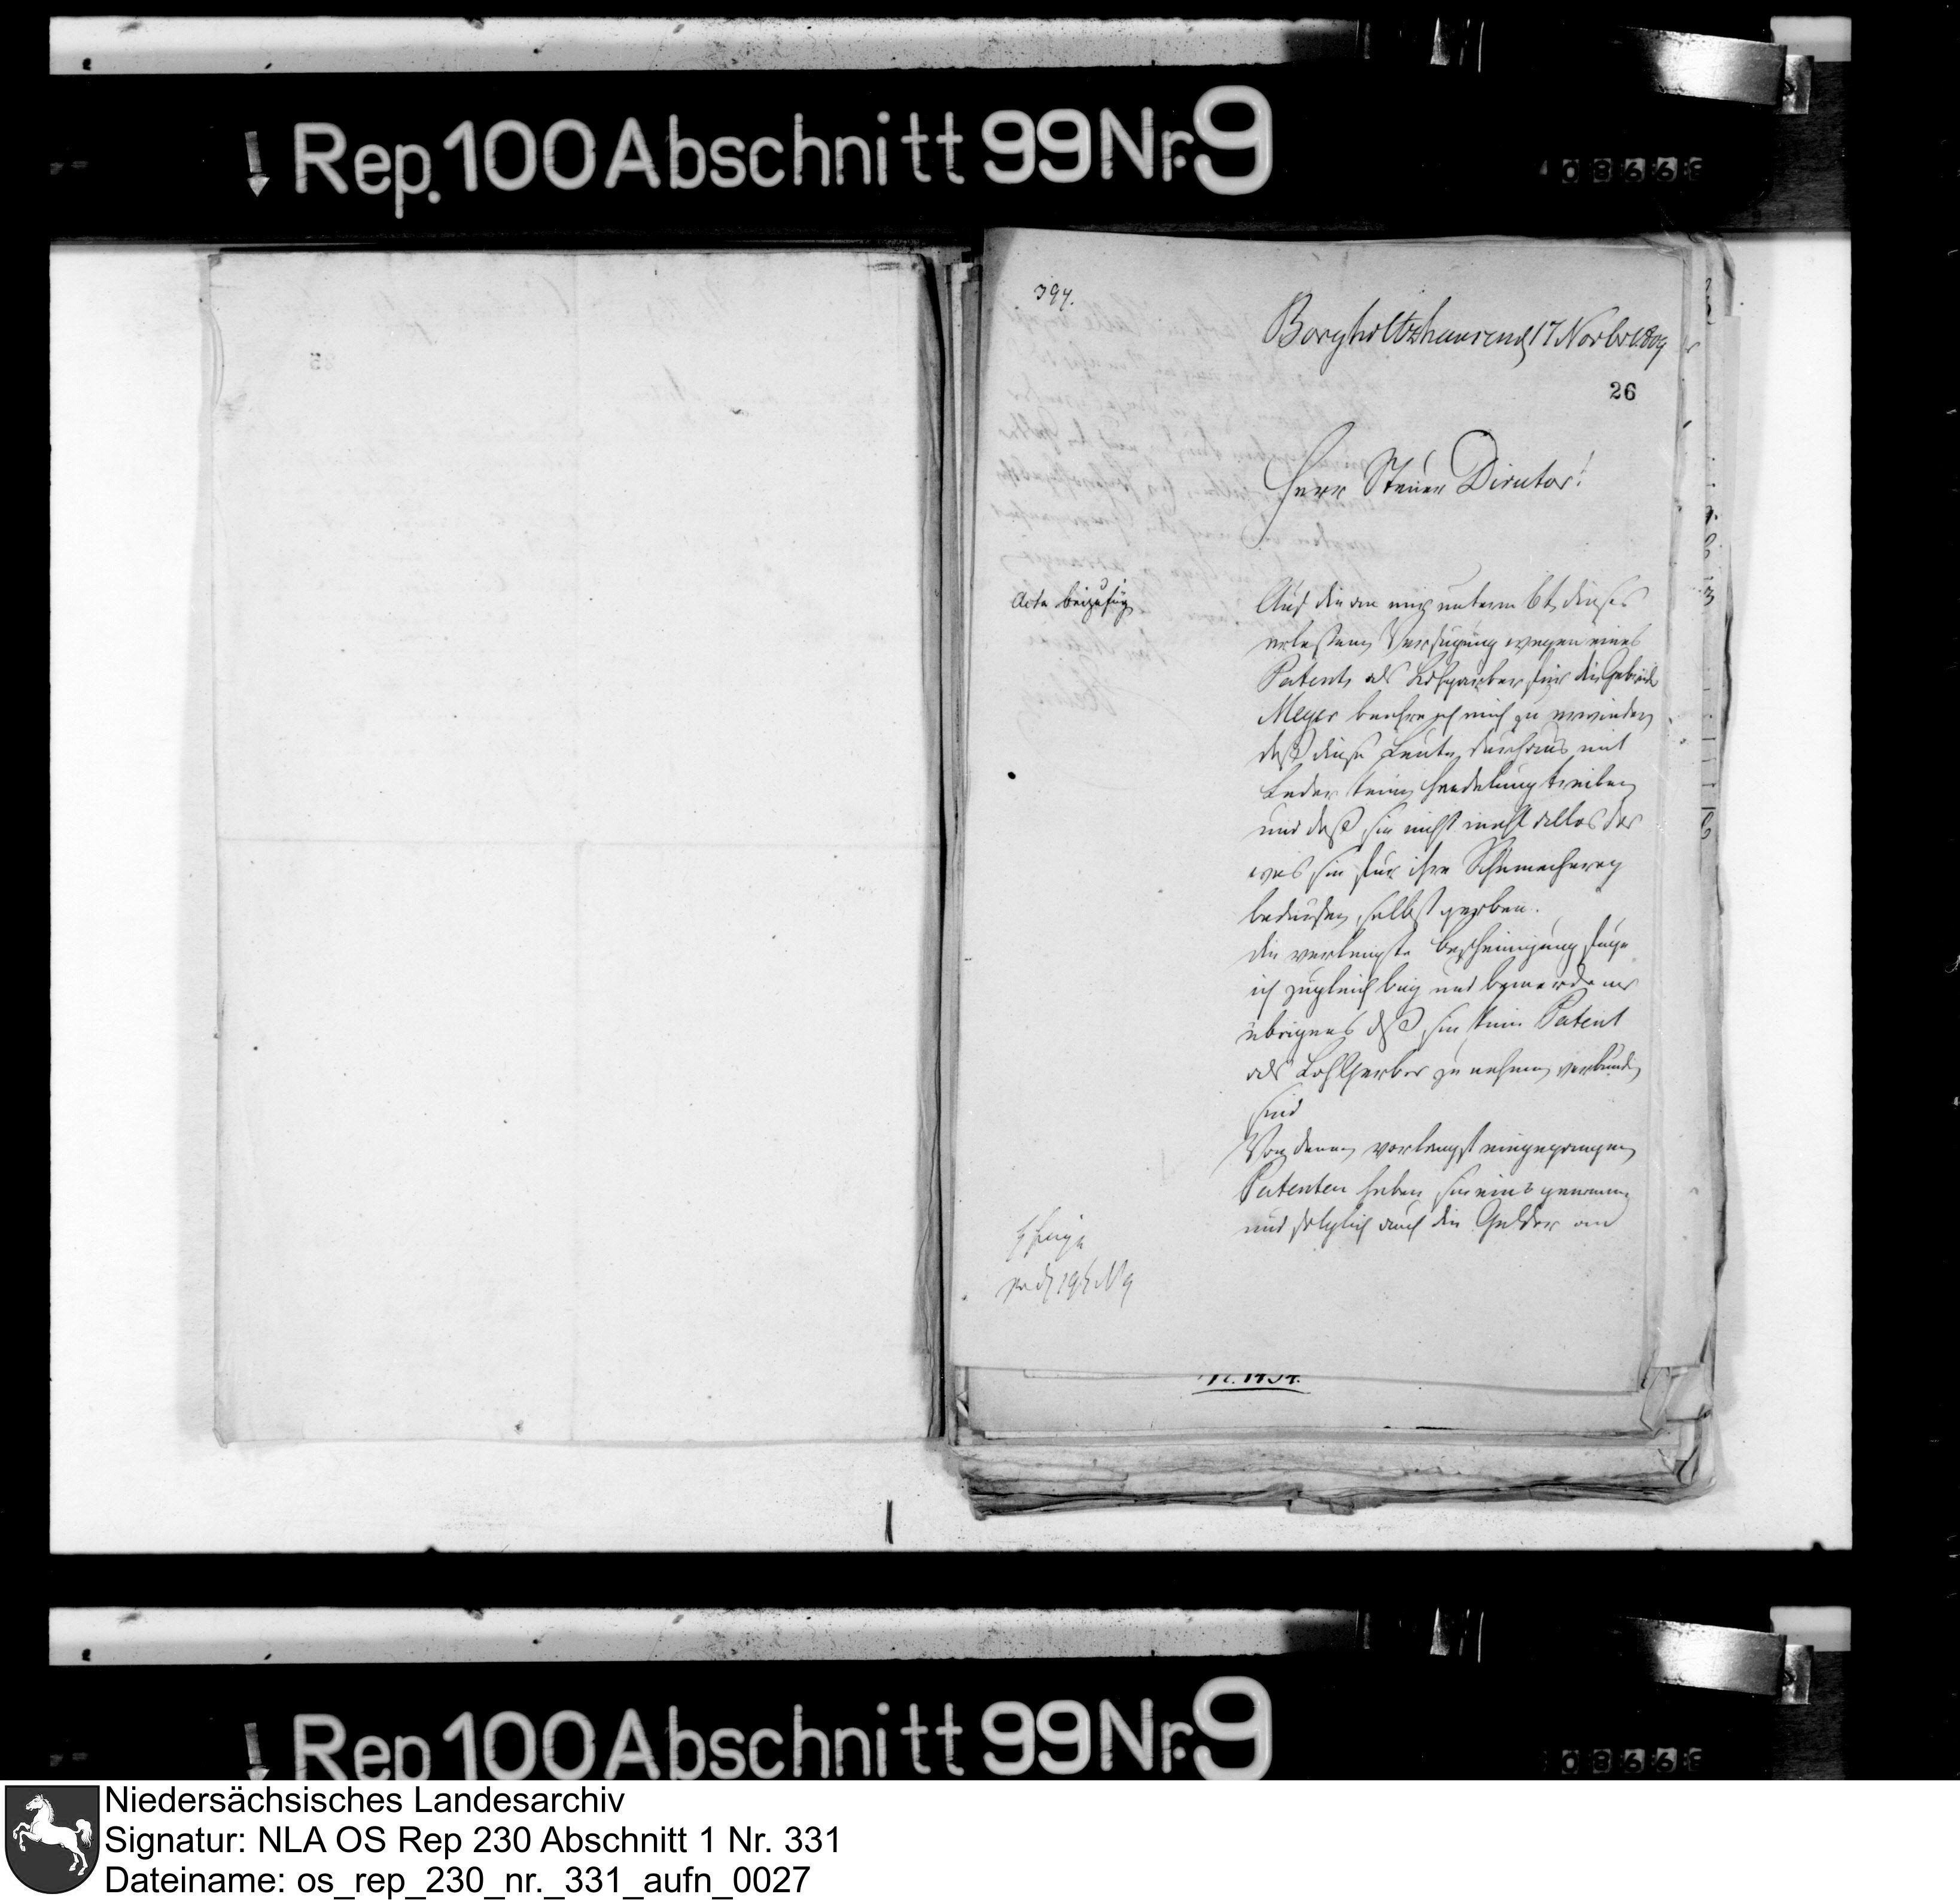 Rep. 100 Abschnitt 99 Nr. 9
0866
394.
Borgholtzhausen d 17 Novbr 1809
26
Herr Steuer Director!
Acta beizufügen
Auf die an mich unterm 6t dieses
erlassene Verfügung wegen eines
Patents als Lohgärber für die Gebrüder
Meyer beehre ich mich zu erwiedern
daß diese Leute durchaus mit
Leder keine Handelung treiben
und daß sie nicht mahl alles das
was sie für ihre Schumacherey
bedürfen selbst gerben.
die verlangte Bescheinigung füge
ich zugleich bey und bemerke
übrigens daß sie kein Patent
als Lohgerber zu nehmen verbunden
sind
Von denen vorlängst eingegangenen
Patenten haben sie eins genommen
und folglich auch die Gelder an
Nr. 1434.
Rep 100 Abschnitt 99 Nr. 9
0866
Niedersächsisches Landesarchiv
Signatur: NLA OS Rep 230 Abschnitt 1 Nr. 331
Dateiname: os_rep_230_nr._331_aufn_0027